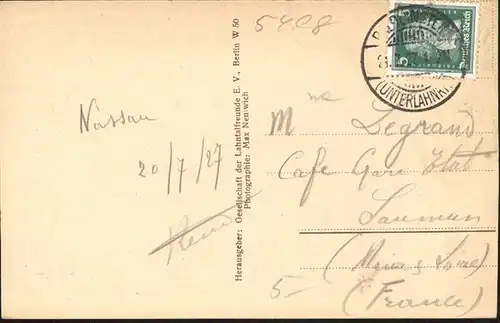 5408
5
Deutsches Reich
(UNTERLAHNKR.)
Nassau
20/7/27
Herausgeber: Gesellschaft der Lahntalfreunde E. V., Berlin W 50
Photographie: Max Nemwich
M Legrand
Cafe Gare Etat
Saumur
(Maine & Loire)
(France)
5-